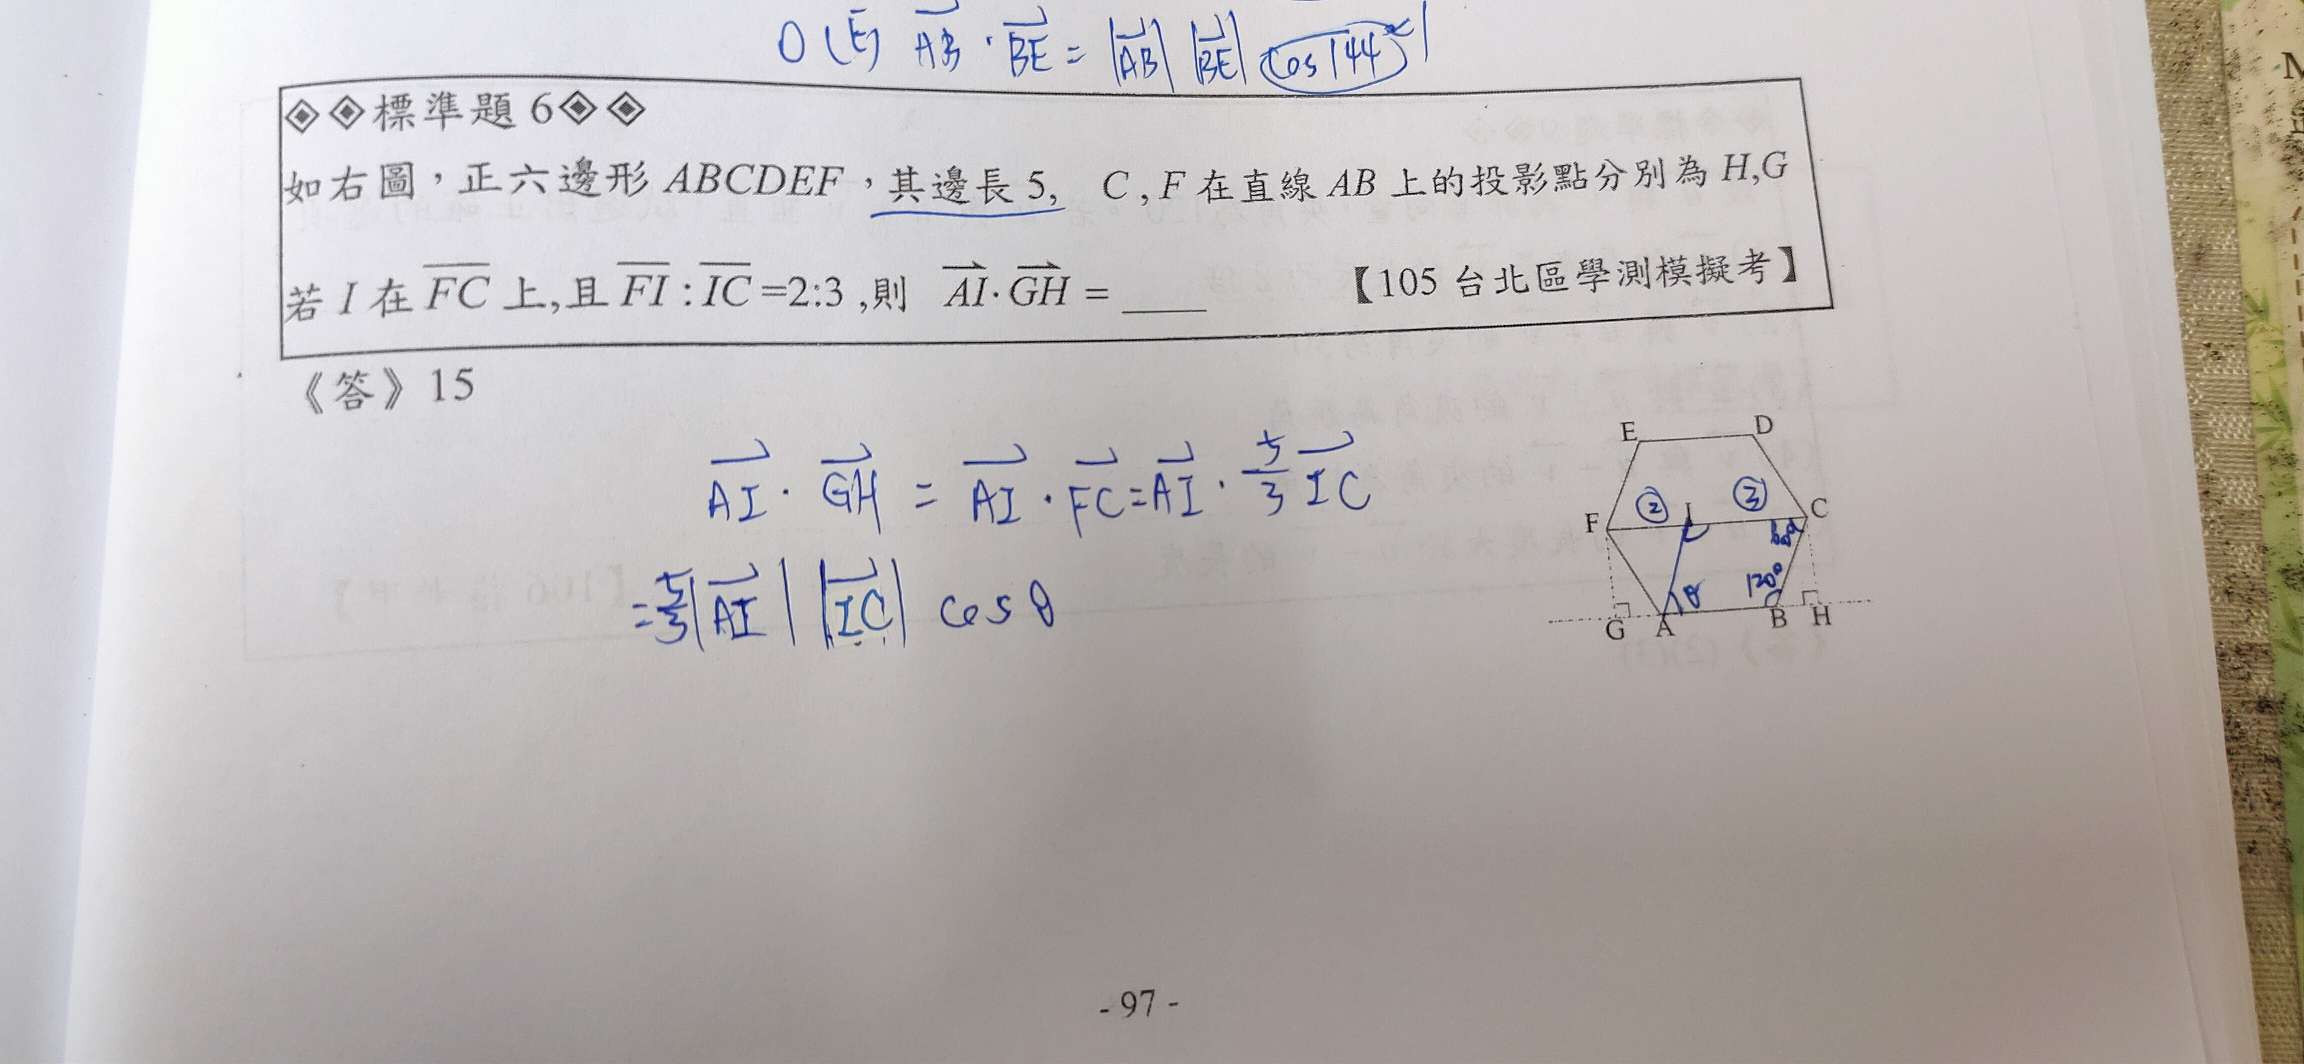 O (E) AB · BE = |AB| |BE| cos 144°
◈◈標準題 6◈◈
如右圖，正六邊形 ABCDEF，其邊長 5, C , F 在直線 AB 上的投影點分別為 H,G
若 I 在 FC 上,且 FI : IC =2:3 ,則 AI·GH = ____ 【105 台北區學測模擬考】
《答》15
AI · GH = AI · FC = AI · 5/3 IC
= 5/3 |AI| |IC| cos θ
E D
F ② I ③ C
60°
θ 120°
G A B H
- 97 -